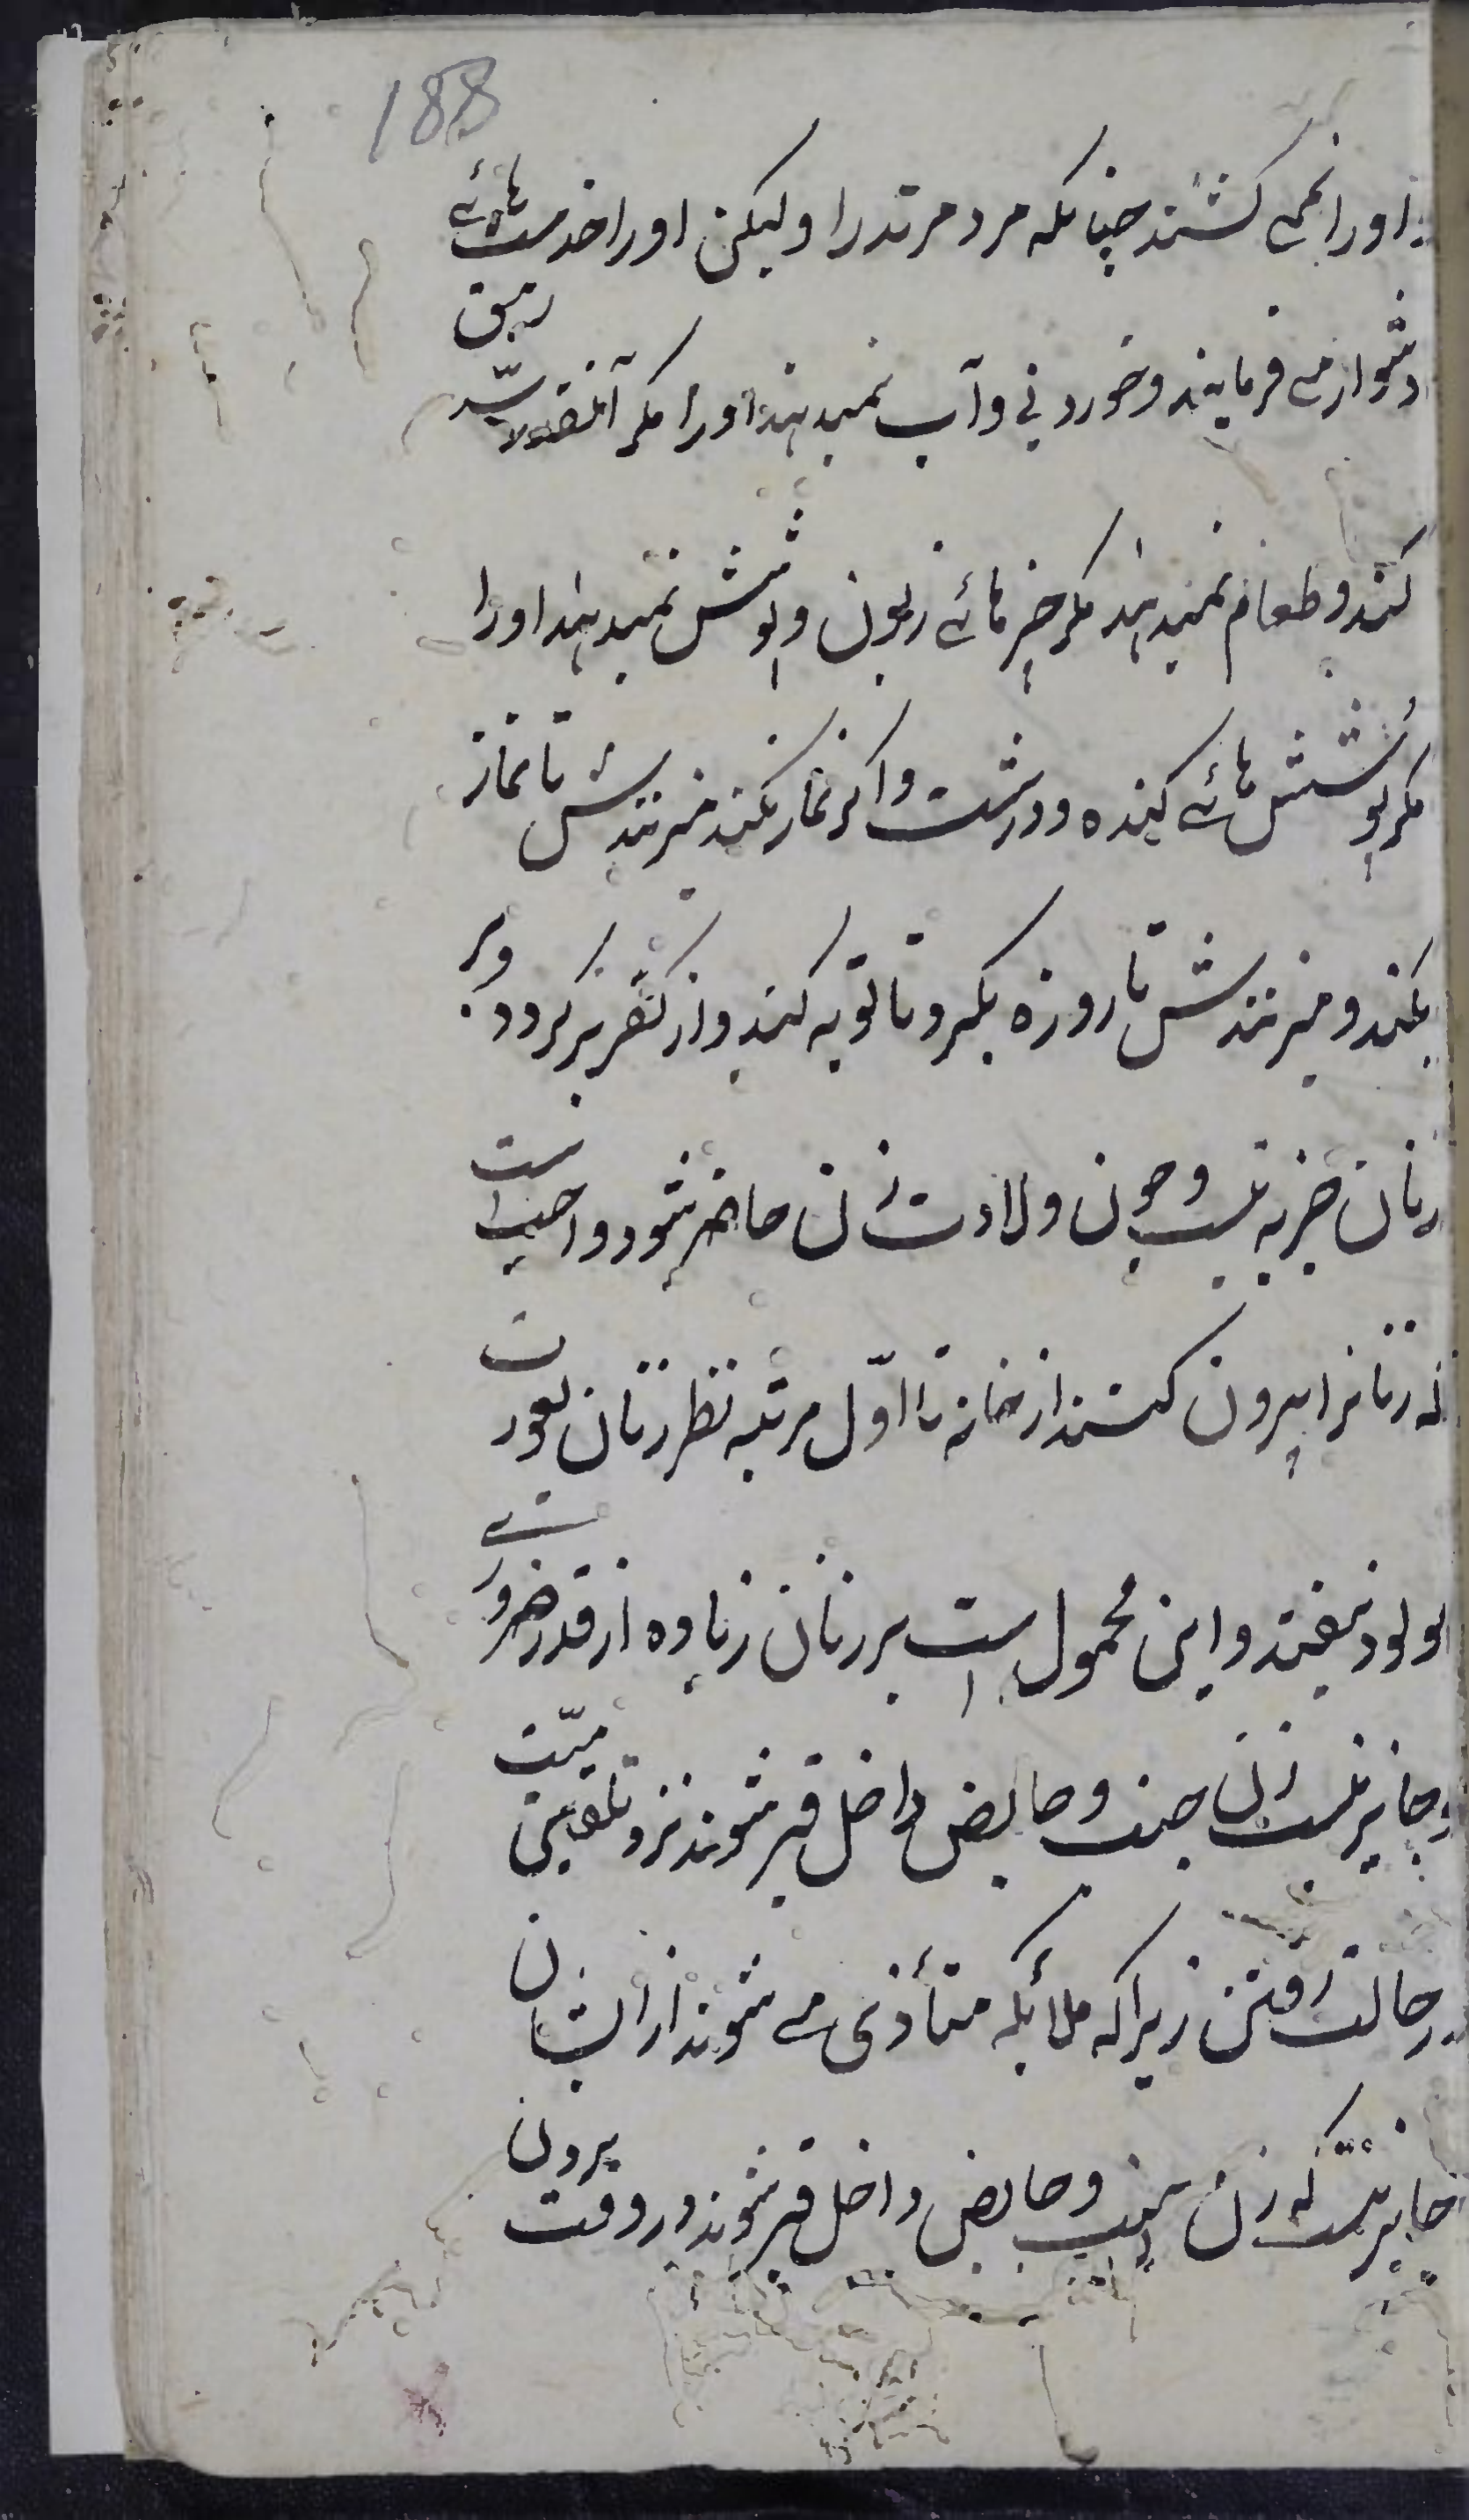 188
اورا نمی کشند چنانکه مرد مرتد را ولیکن اورا خدمت هائے
دشوار مے فرمایند و خوردنی و آب نمیدهند اورا مکر آنقدر سد رمق
کند و طعام نمیدهند مکر چیز هائے زبون و پوشش نمیدهند اورا
مکر پوشش هائے کنده و درشت و اکر نماز نکند میزنندش تا نماز
بکند و میزنندش تا روزه بکیرد تا توبه کند و از کفر برکردد و بر
زنان جزیه نیست و چون ولادت زن حاضر شود واجبست
که زنانرا بیرون کنند از خانه تا اوّل مرتبه نظر زنان بعورت
مولود نیفتد و این محمول است بر زنان زیاده از قدر ضرورے
و جایز نیست زن جنب و حایض داخل قبر شوند نزد تلقین میّت
در حالت رفتن زیرا که ملائکه متأذی مے شوند از ایشان
جایز است که زن جنب و حایض داخل قبر شوند در وقت بیرون